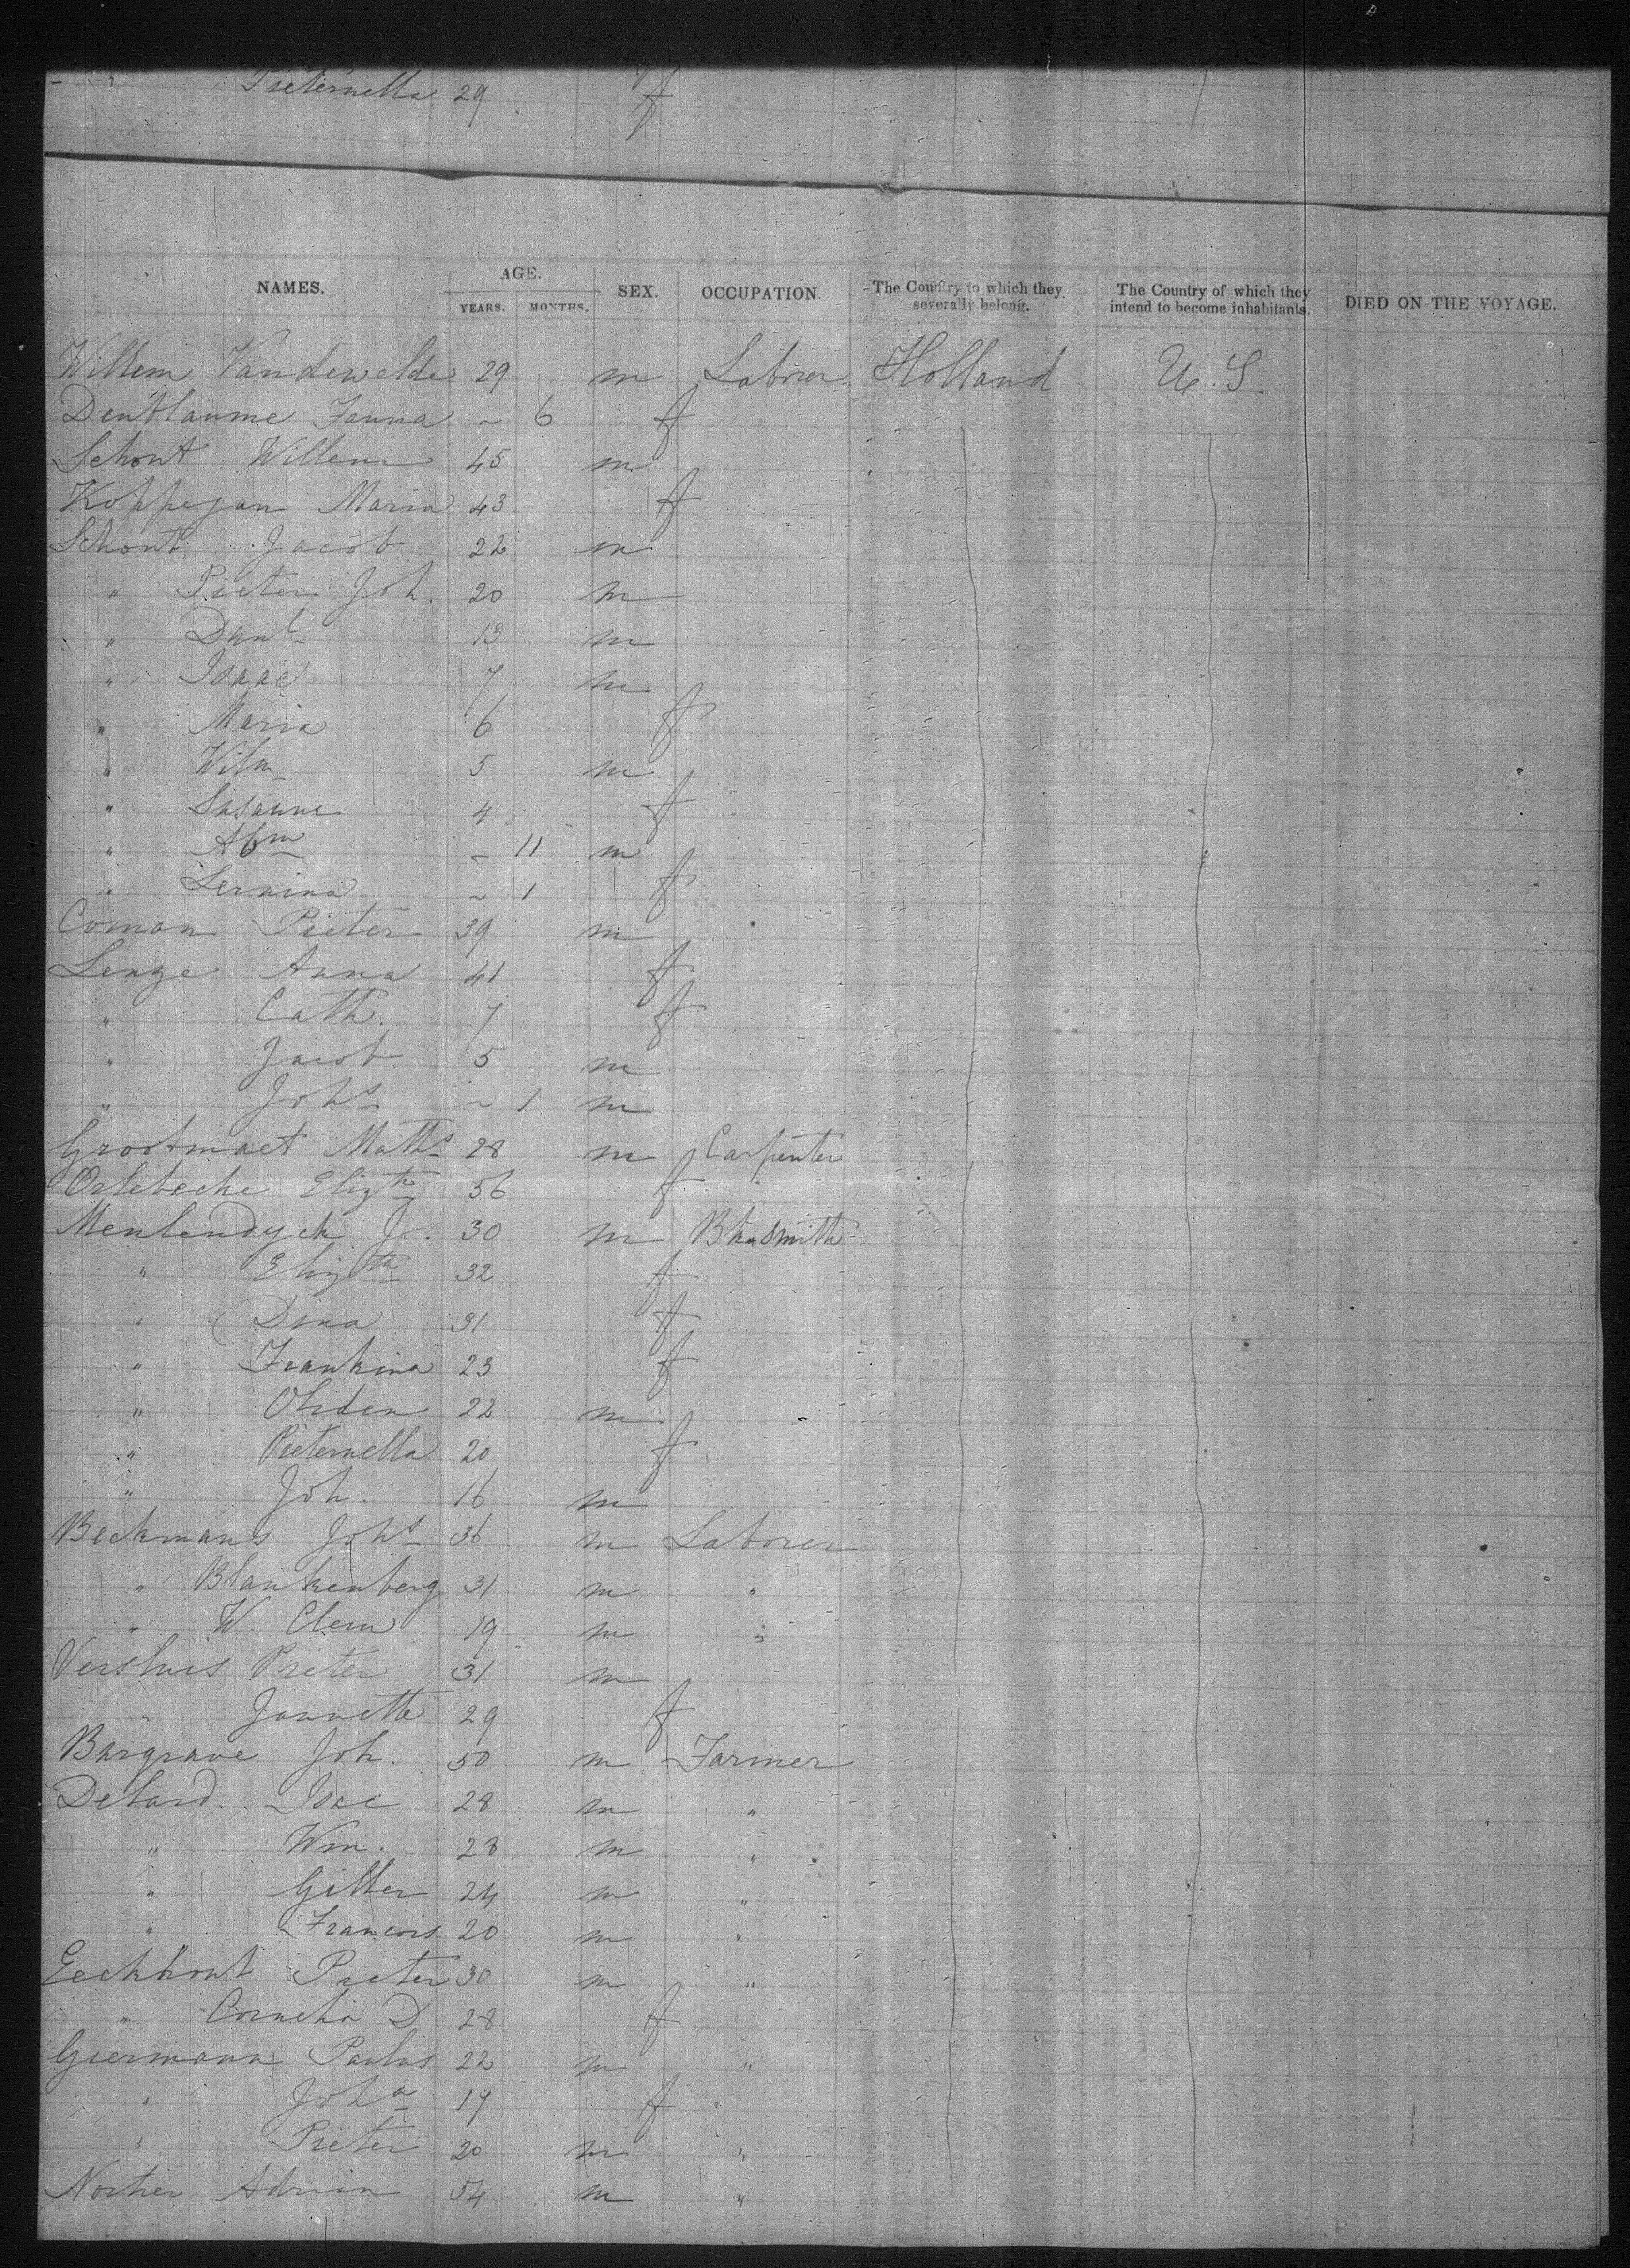 " Pieternella 29 f
NAMES. AGE. YEARS. MONTHS. SEX. OCCUPATION. The Country to which they severally belong. The Country of which they intend to become inhabitants. DIED ON THE VOYAGE.
Willem Vandewelde 29 m Laborer Holland U.S.
Janna ~ 6 f
Schout Willem 45 m
Koppejan Maria 43 f
Schout Jacob 22 m
" Pieter Joh. 20 m
" Danl 13 m
" Isaac 7 m
" Maria 6 f
" Wilm 5 m
" Susanne 4 f
" Abm ~ 11 m
" ~ 1 f
Coman Pieter 39 m
Lenze Anna 41 f
" Cath. 7 f
" Jacob 5 m
" Johs ~ 1 m
Grootmaet Matths 28 m Carpenter
Orlebeche Elizth 56 f
Menlendyck J. 30 m Blksmith
" Elizth 32 f
" Dina 31 f
" Frankina 23 f
" 22 m
" Pieternella 20 f
" Joh. 16 m
Beckmans Johs 36 m Laborer
" Blankenberg 31 m "
" W. Clem 19 m "
Versluis Pieter 31 m
" Jannette 29 f
Bargrave Joh. 50 m Farmer
Delard Isac 28 m "
" Wm. 28 m "
" 24 m "
" Francois 20 m "
Eeckhout Pieter 30 m "
" Cornelia D 28 f
Geermann Paulus 22 m "
" Joha 17 f "
" Pieter 20 m "
Nortier Adrian 54 m "